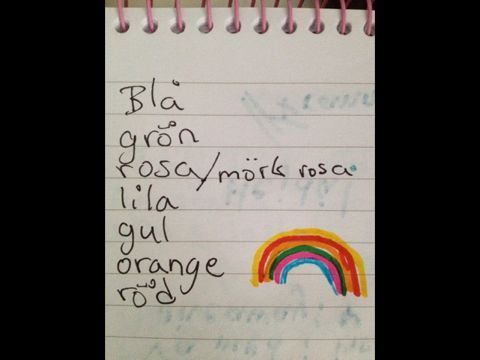 Blå
grön
rosa/mörk rosa
lila
gul
orange
röd